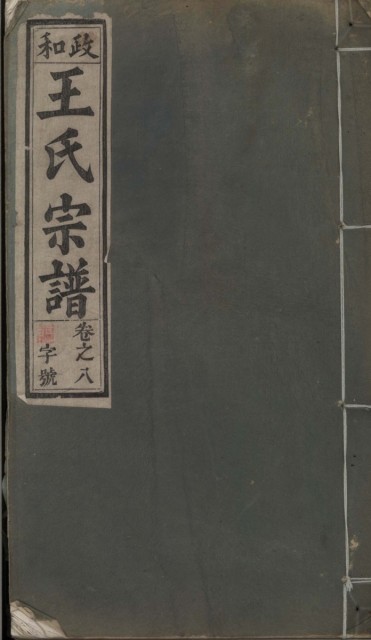 政和
王氏宗譜
卷之八
字號